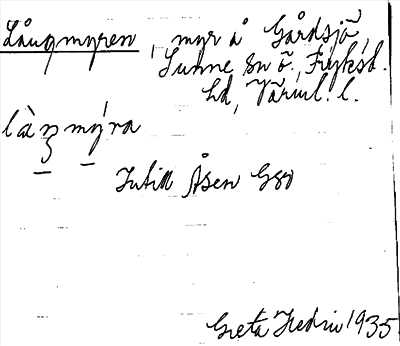 Långmyren, myr å Gårdsjö,
Sunne sn ö., Fryksd.
hd, Värml. l.
làŋmýra
Intill Åsen G80
Greta Hedin 1935